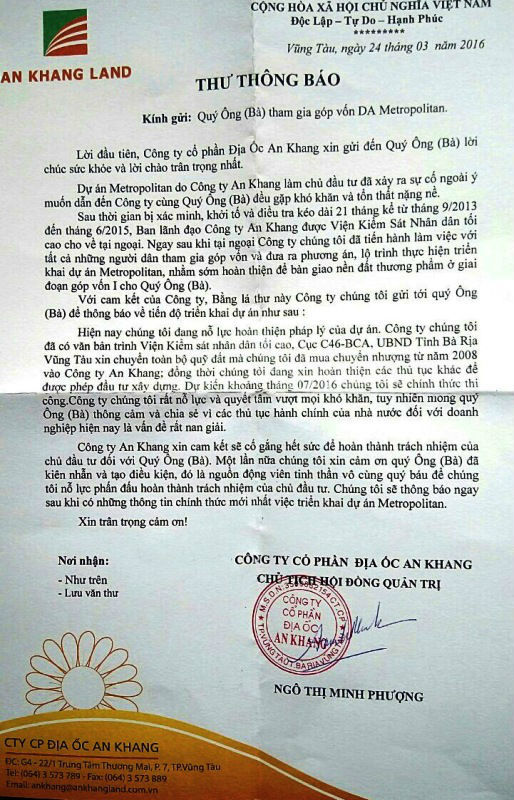 AN KHANG LAND
CỘNG HÒA XÃ HỘI CHỦ NGHĨA VIỆT NAM
Độc Lập – Tự Do – Hạnh Phúc
*********
Vũng Tàu, ngày 24 tháng 03 năm 2016
THƯ THÔNG BÁO
Kính gửi: Quý Ông (Bà) tham gia góp vốn DA Metropolitan.
Lời đầu tiên, Công ty cổ phần Địa Ốc An Khang xin gửi đến Quý Ông (Bà) lời
chúc sức khỏe và lời chào trân trọng nhất.
Dự án Metropolitan do Công ty An Khang làm chủ đầu tư đã xảy ra sự cố ngoài ý
muốn dẫn đến Công ty cùng Quý Ông (Bà) đều gặp khó khăn và tổn thất nặng nề.
Sau thời gian bị xác minh, khởi tố và điều tra kéo dài 21 tháng kể từ tháng 9/2013
đến tháng 6/2015, Ban lãnh đạo Công ty An Khang được Viện Kiểm Sát Nhân dân tối
cao cho về tại ngoại. Ngay sau khi tại ngoại Công ty chúng tôi đã tiến hành làm việc với
tất cả những người dân tham gia góp vốn và đưa ra phương án, lộ trình thực hiện triển
khai dự án Metropolitan, nhằm sớm hoàn thiện để bàn giao nền đất thương phẩm ở giai
đoạn góp vốn I cho Quý Ông (Bà).
Với cam kết của Công ty, Bằng lá thư này Công ty chúng tôi gửi tới quý Ông
(Bà) để thông báo về tiến độ triển khai dự án như sau :
Hiện nay chúng tôi đang nỗ lực hoàn thiện pháp lý của dự án. Công ty chúng tôi
đã có văn bản trình Viện Kiểm sát nhân dân tối cao, Cục C46-BCA, UBND Tỉnh Bà Rịa
Vũng Tàu xin chuyển toàn bộ quỹ đất mà chúng tôi đã mua chuyển nhượng từ năm 2008
vào Công ty An Khang; đồng thời chúng tôi đang xin hoàn thiện các thủ tục khác để
được phép đầu tư xây dựng. Dự kiến khoảng tháng 07/2016 chúng tôi sẽ chính thức thi
công.Công ty chúng tôi rất nỗ lực và quyết tâm vượt mọi khó khăn, tuy nhiên mong quý
Ông (Bà) thông cảm và chia sẻ vì các thủ tục hành chính của nhà nước đối với doanh
nghiệp hiện nay là vấn đề rất nan giải.
Công ty An Khang xin cam kết sẽ cố gắng hết sức để hoàn thành trách nhiệm của
chủ đầu tư đối với Quý Ông (Bà). Một lần nữa chúng tôi xin cảm ơn quý Ông (Bà) đã
kiên nhẫn và tạo điều kiện, đó là nguồn động viên tinh thần vô cùng quý báu để chúng
tôi nỗ lực phấn đấu hoàn thành trách nhiệm của chủ đầu tư. Chúng tôi sẽ thông báo ngay
sau khi có những thông tin chính thức mới nhất việc triển khai dự án Metropolitan.
Xin trân trọng cảm ơn!
Nơi nhận:
- Như trên
- Lưu văn thư
CÔNG TY CỔ PHẦN ĐỊA ỐC AN KHANG
CHỦ TỊCH HỘI ĐỒNG QUẢN TRỊ
CÔNG TY
CỔ PHẦN
ĐỊA ỐC
AN KHANG
NGÔ THỊ MINH PHƯỢNG
CTY CP ĐỊA ỐC AN KHANG
ĐC: G4 - 22/1 Trung Tâm Thương Mại, P. 7, TP.Vũng Tàu
Tel: (064) 3 573 789 - Fax: (064) 3 573 889
Email: ankhang@ankhangland.com.vn